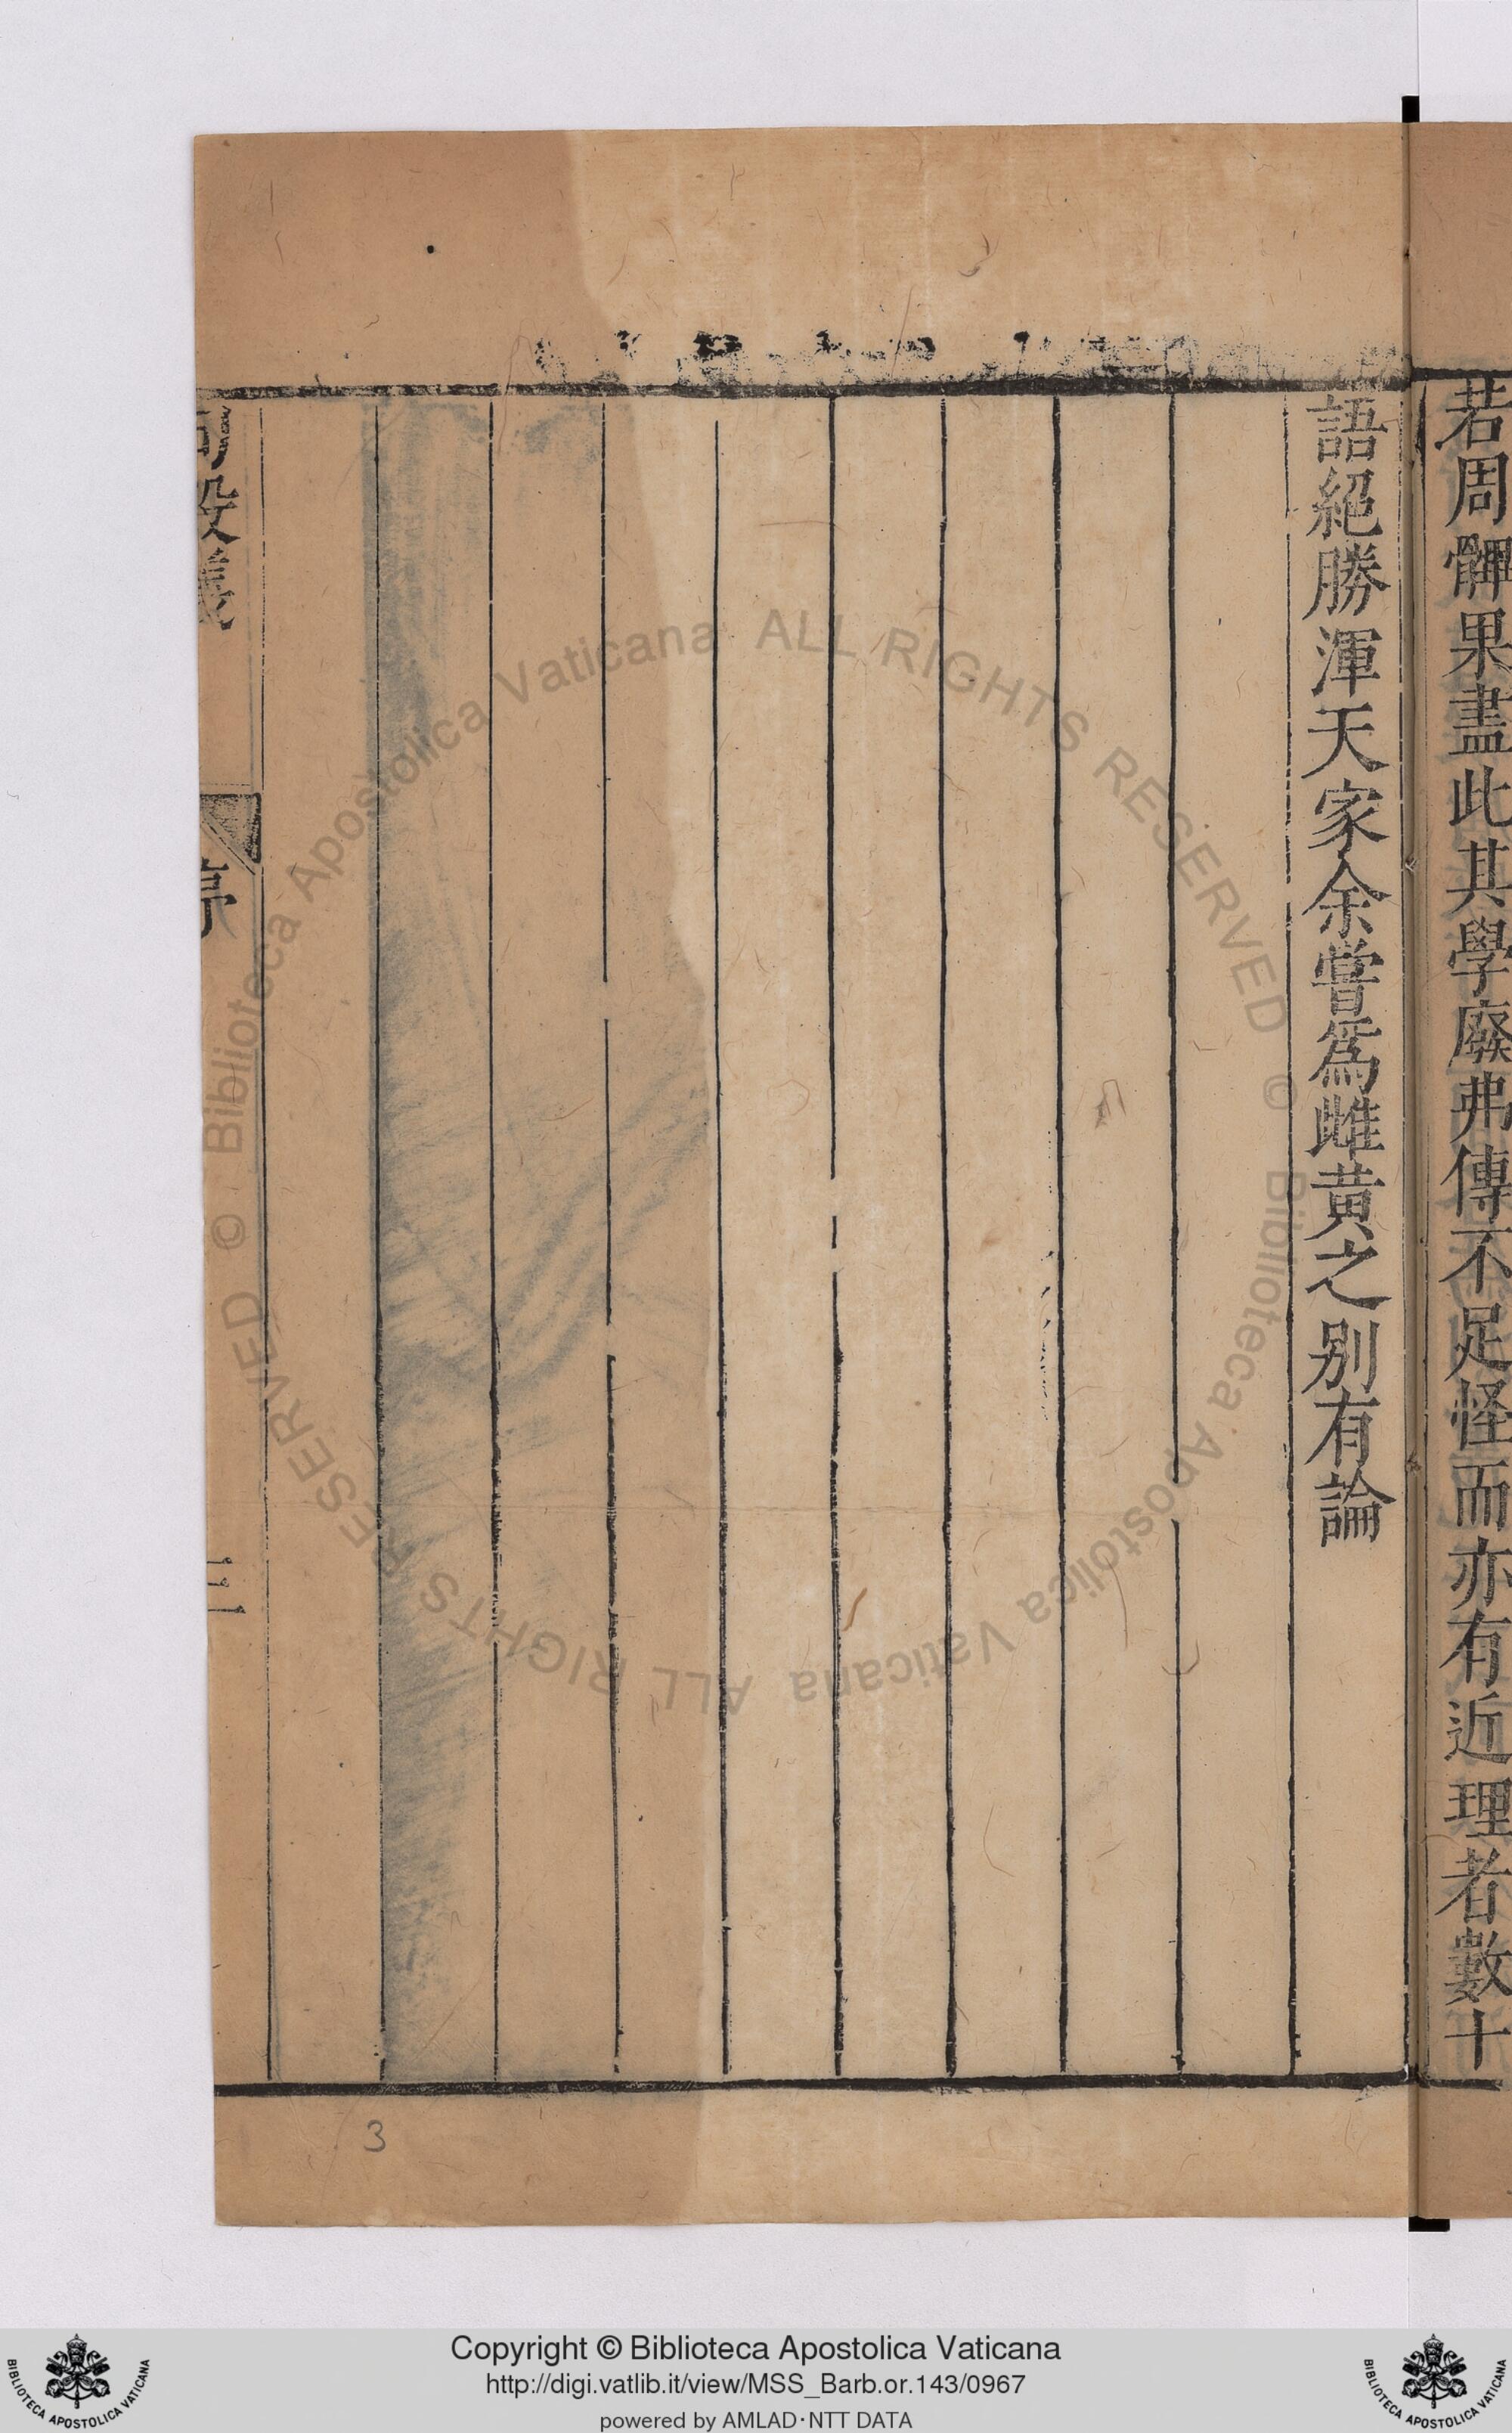 若周髀果盡此其學廢弗傳不足怪而亦有近理者數十
語絕勝渾天家余嘗爲雌黃之別有論
句股義
序
三
3
© Biblioteca Apostolica Vaticana ALL RIGHTS RESERVED
© Biblioteca Apostolica Vaticana ALL RIGHTS RESERVED
Copyright © Biblioteca Apostolica Vaticana
http://digi.vatlib.it/view/MSS_Barb.or.143/0967
powered by AMLAD·NTT DATA
BIBLIOTECA APOSTOLICA VATICANA
BIBLIOTECA APOSTOLICA VATICANA